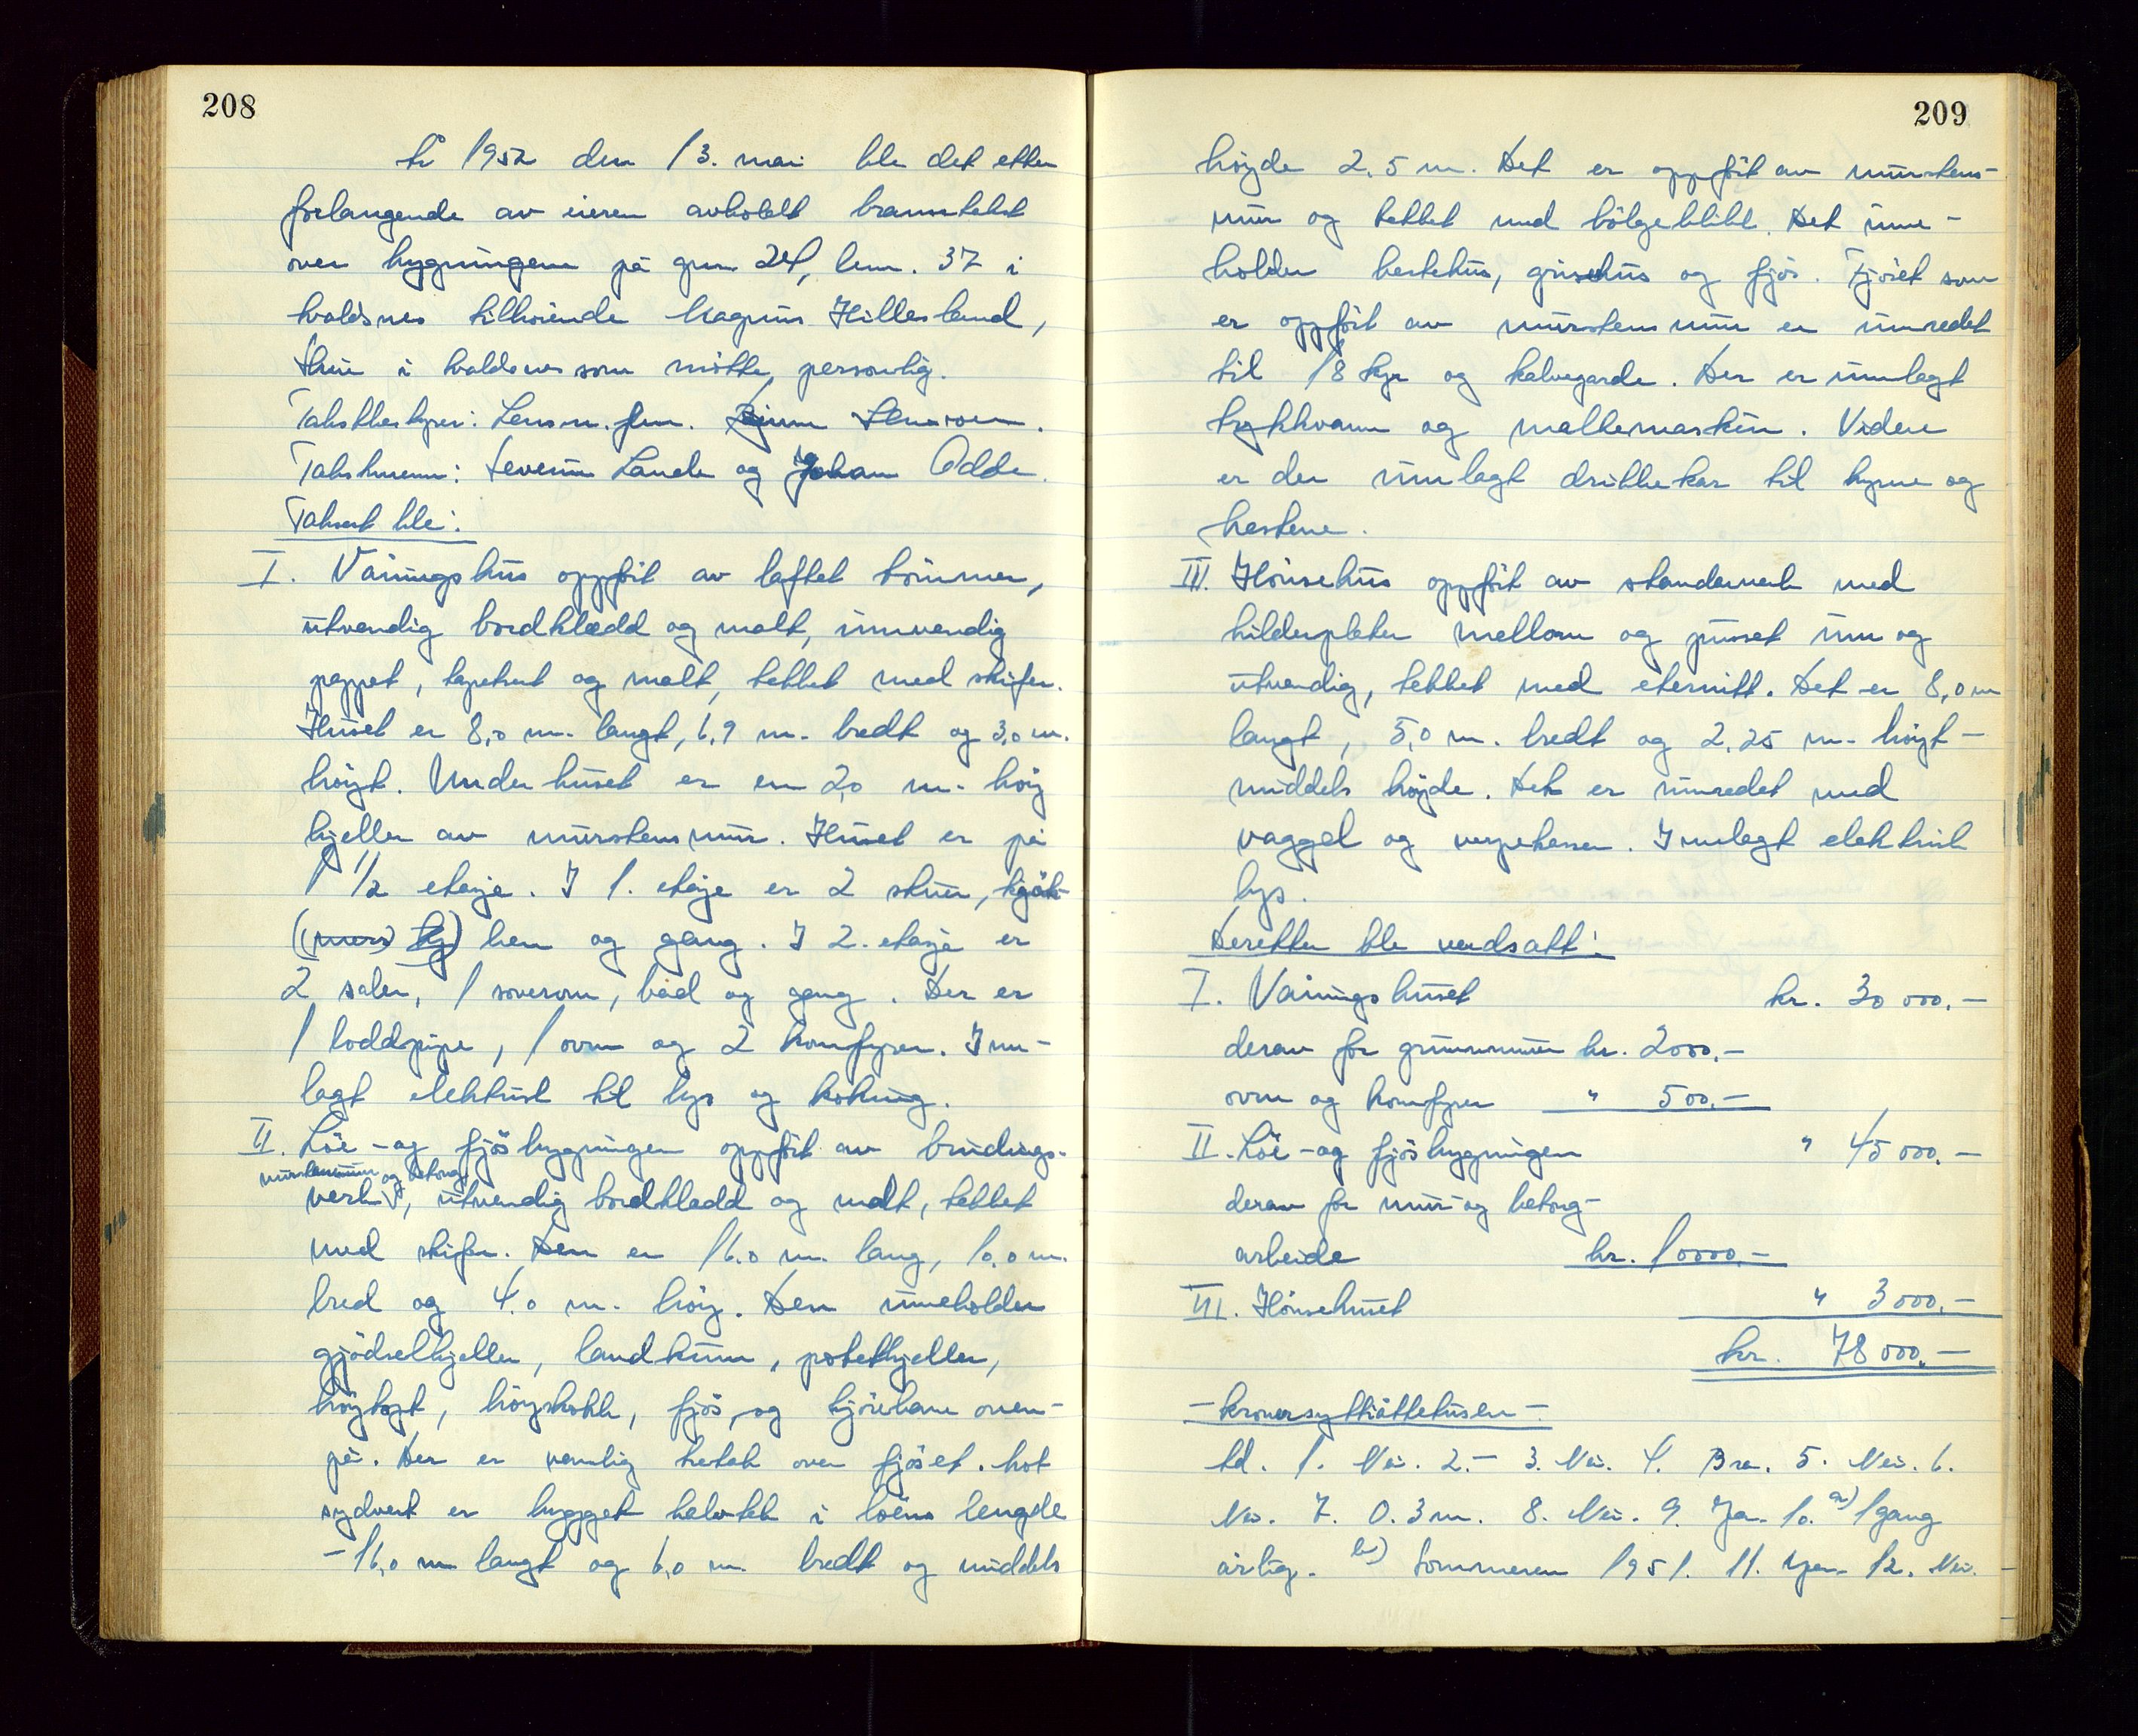 208
År 1952 den 13. mai ble det etter
forlangende av eieren avholdt branntakst
over bygningene på gnr. 24, bnr. 37 i
Avaldsnes tilhørende Magnus Hillesland,
i Avaldsnes som møtte personlig.
Takstbestyrer: Lensm. fm.
Takstmenn: Severin Lande og Johan Odde.
Taksert ble:
I. Våningshus oppført av laftet tømmer,
utvendig bordklædd og malt, innvendig
pappet, tapetsert og malt, tekket med skifer.
Huset er 8,0 m. langt, 6,9 m. bredt og 3,0 m.
høigt. Under huset er en 2,0 m. høig
kjeller av murstensmur. Huset er på
1 1/2 etasje. I 1. etasje er 2 stuer, kjøk-
ken og gang. I 2. etasje er
2 saler, 1 soverom, bad og gang. Der er
1 loddpipe, 1 ovn og 2 komfyrer. Inn-
lagt elektrisk til lys og koking.
II. Löe- og fjösbygningen oppført av bindings-
murstensmur og betong
verk, utvendig bordkledd og malt, tekket
med skifer. Den er 16.0 m. lang, 10,0 m.
bred og 4.0 m. høig. Den inneholder
gjødselkjeller, landkum, potetkjeller,
høygolv, høystokk, fjös, og kjørebane oven-
på. Der er vanlig tretak over fjöset. Mot
sydvest er bygget halvtek i löens lengde
- 16,0 m langt og 6,0 m bredt og middels
209
høyde 2,5 m. Det er oppført av murstens-
mur og tekket med bølgeblikk. Det inne-
holder hestehus, grisehus og fjös. Fjöset som
er oppført av murstensmur er innredet
til 18 kyr og kalvegarde. Der er innlagt
trykkvann og melkemaskin. Videre
er der innlagt drikkekar til kyrne og
hestene.
III. Hönsehus oppført av standerverk med
bilderplater mellom og pusset inn og
utvendig, tekket med eternitt. Det er 8,0 m
langt, 5,0 m. bredt og 2,25 m. høigt -
middels høyde. Det er innredet med
vaggel og verpekasser. Innlagt elektrisk
lys.
Deretter ble verdsatt:
I. Våningshuset kr. 30 000.-
derav for grunnmuren kr. 2000,-
ovn og komfyrer " 500.-
II. Löe- og fjösbygningen " 45 000.-
derav for mur- og betong-
arbeide kr. 10000.-
III. Hönsehuset " 3 000.-
kr. 78 000.-
- Kronersyttiåttetusen -
td. 1. Nei. 2.- 3. Nei. 4. Bra. 5. Nei. 6.
Nei. 7. 0.3 m. 8. Nei. 9. Ja. 10. a) 1 gang
årlig. b) Sommeren 1951. 11. Ja. 12. Nei.